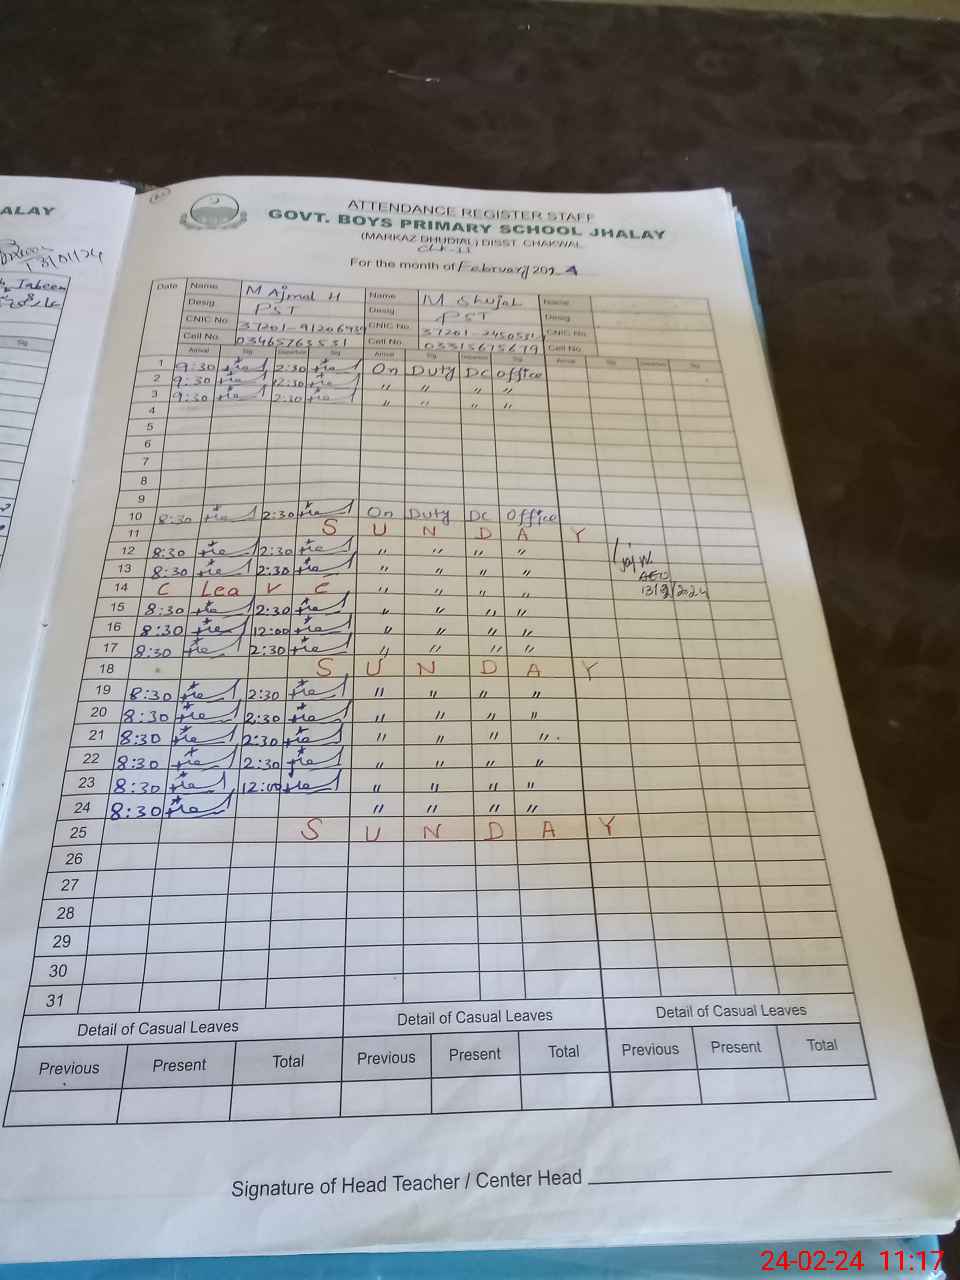 ALAY
ATTENDANCE REGISTER STAFF
GOVT. BOYS PRIMARY SCHOOL JHALAY
(MARKAZ BHUDIAL) DISST. CHAKWAL
For the month of February 2024
Date Name M Ajmal H Name M Shujah Name
Desig. PST Desig. PST Desig.
CNIC No. CNIC No. CNIC No.
Cell No. 03465763531 Cell No. 03315675679 Cell No.
Arrival Sig. Departure Sig. Arrival Sig. Departure Sig. Arrival Sig. Departure Sig.
1 9:30 2:30 On Duty DC Office
2 9:30 2:30 " " " "
3 9:30 2:30 " " " "
4
5
6
7
8
9
10 8:30 2:30 On Duty DC Office
11 S U N D A Y
12 8:30 2:30 " " " "
13 8:30 2:30 " " " "
AEO
13/2/2024
14 C Lea v e " " " "
15 8:30 2:30 " " " "
16 8:30 12:00 " " " "
17 8:30 2:30 " " " "
18 S U N D A Y
19 8:30 2:30 " " " "
20 8:30 2:30 " " " "
21 8:30 2:30 " " " "
22 8:30 2:30 " " " "
23 8:30 12:00 " " " "
24 8:30 " " " "
25 S U N D A Y
26
27
28
29
30
31
Detail of Casual Leaves Detail of Casual Leaves Detail of Casual Leaves
Previous Present Total Previous Present Total Previous Present Total
Signature of Head Teacher / Center Head
24-02-24 11:17